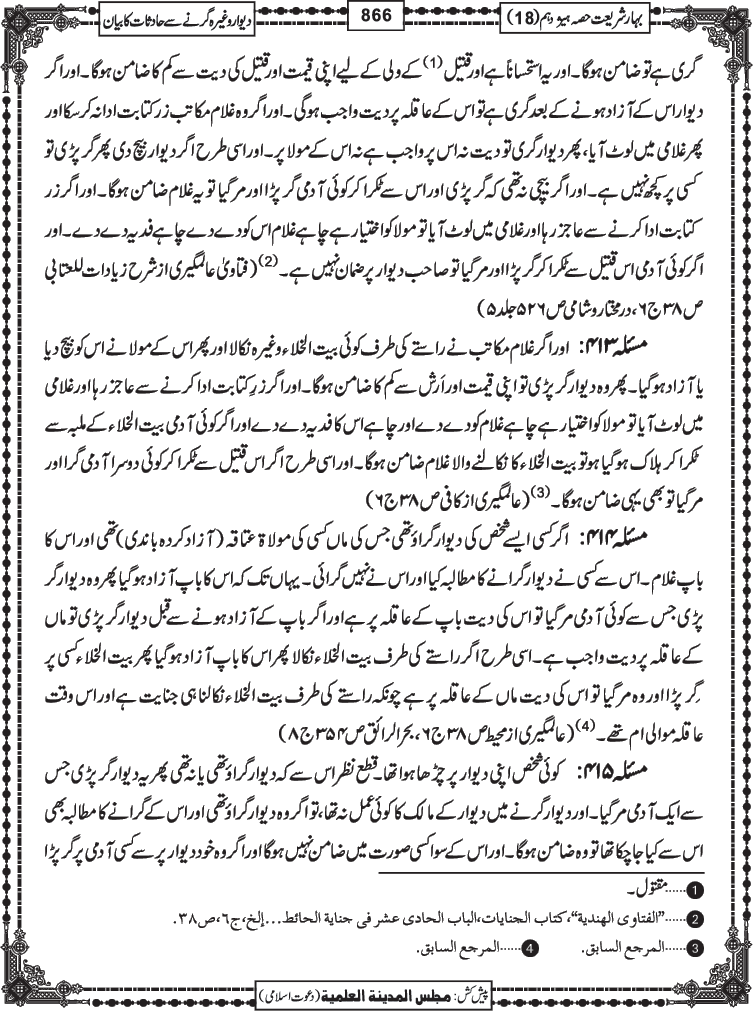 بہار شریعت حصہ ہیژ دہم (18)
866
دیوار وغیرہ گرنے سے حادثات کا بیان
گری ہے تو ضامن ہوگا۔ اور یہ استحساناً ہے اور قتیل (1) کے ولی کے لیے اپنی قیمت اور قتیل کی دیت سے کم کا ضامن ہوگا۔ اور اگر
دیوار اس کے آزاد ہونے کے بعد گری ہے تو اس کے عاقلہ پر دیت واجب ہوگی ۔ اور اگر وہ غلام مکاتب زر کتابت ادا نہ کر سکا اور
پھر غلامی میں لوٹ آیا، پھر دیوار گری تو دیت نہ اس پر واجب ہے نہ اس کے مولا پر۔ اور اسی طرح اگر دیوار بیچ دی پھر گر پڑی تو
کسی پر کچھ نہیں ہے۔ اور اگر بیچی نہ تھی کہ گر پڑی اور اس سے ٹکرا کر کوئی آدمی گر پڑا اور مرگیا تو یہ غلام ضامن ہوگا۔ اور اگر زر
کتابت ادا کرنے سے عاجز رہا اور غلامی میں لوٹ آیا تو مولا کو اختیار ہے چاہے غلام اس کو دے دے چاہے فدیہ دے دے۔ اور
اگر کوئی آدمی اس قتیل سے ٹکرا کر گر پڑا اور مرگیا تو صاحب دیوار پر ضمان نہیں ہے۔ (2) (فتاویٰ عالمگیری از شرح زیادات للعتابی
ص ۳۸ ج ۶، درمختار و شامی ص ۵۲۶ جلد ۵)
مسئلہ ۴۱۳: اور اگر غلام مکاتب نے راستے کی طرف کوئی بیت الخلاء وغیرہ نکالا اور پھر اس کے مولا نے اس کو بیچ دیا
یا آزاد ہوگیا۔ پھر وہ دیوار گر پڑی تو اپنی قیمت اور اَرش سے کم کا ضامن ہوگا۔ اور اگر زرِ کتابت ادا کرنے سے عاجز رہا اور غلامی
میں لوٹ آیا تو مولا کو اختیار ہے چاہے غلام کو دے دے اور چاہے اس کا فدیہ دے دے اور اگر کوئی آدمی بیت الخلاء کے ملبہ سے
ٹکرا کر ہلاک ہوگیا ہو تو بیت الخلاء کا نکالنے والا غلام ضامن ہوگا۔ اور اسی طرح اگر اس قتیل سے ٹکرا کر کوئی دوسرا آدمی گرا اور
مرگیا تو بھی یہی ضامن ہوگا۔ (3) (عالمگیری از کافی ص ۳۸ ج ۶)
مسئلہ ۴۱۴: اگر کسی ایسے شخص کی دیوار گراؤ تھی جس کی ماں کسی کی مولاۃ عتاقہ (آزاد کردہ باندی) تھی اور اس کا
باپ غلام ۔ اس سے کسی نے دیوار گرانے کا مطالبہ کیا اور اس نے نہیں گرائی۔ یہاں تک کہ اس کا باپ آزاد ہوگیا پھر وہ دیوار گر
پڑی جس سے کوئی آدمی مرگیا تو اس کی دیت باپ کے عاقلہ پر ہے اور اگر باپ کے آزاد ہونے سے قبل دیوار گر پڑی تو ماں
کے عاقلہ پر دیت واجب ہے۔ اسی طرح اگر راستے کی طرف بیت الخلاء نکالا پھر اس کا باپ آزاد ہوگیا پھر بیت الخلاء کسی پر
گر پڑا اور وہ مرگیا تو اس کی دیت ماں کے عاقلہ پر ہے چونکہ راستے کی طرف بیت الخلاء نکالنا ہی جنایت ہے اور اس وقت
عاقلہ موالی ام تھے۔ (4) (عالمگیری از محیط ص ۳۸ ج ۶، بحر الرائق ص ۳۵۴ ج ۸)
مسئلہ ۴۱۵: کوئی شخص اپنی دیوار پر چڑھا ہوا تھا۔ قطع نظر اس سے کہ دیوار گراؤ تھی یا نہ تھی پھر یہ دیوار گر پڑی جس
سے ایک آدمی مرگیا۔ اور دیوار گرنے میں دیوار کے مالک کا کوئی عمل نہ تھا، تو اگر وہ دیوار گراؤ تھی اور اس کے گرانے کا مطالبہ بھی
اس سے کیا جا چکا تھا تو وہ ضامن ہوگا۔ اور اس کے سوا کسی صورت میں ضامن نہیں ہوگا اور اگر وہ خود دیوار پر سے کسی آدمی پر گر پڑا
1 ......مقتول۔
2 ......"الفتاوی الھندیة"، کتاب الجنایات، الباب الحادی عشر فی جنایة الحائط...إلخ، ج٦، ص٣٨.
3 ......المرجع السابق. 4 ......المرجع السابق.
پیش کش: مجلس المدینة العلمیة (دعوت اسلامی)